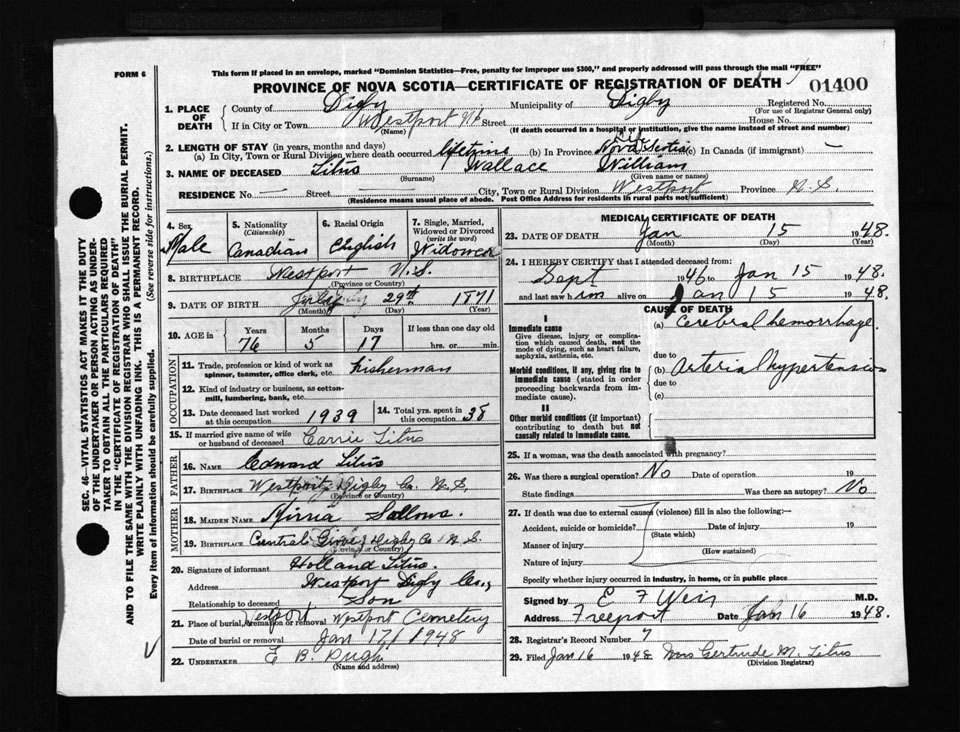 FORM 6
This form if placed in an envelope, marked "Dominion Statistics—Free, penalty for improper use $300," and properly addressed will pass through the mail "FREE"
PROVINCE OF NOVA SCOTIA—CERTIFICATE OF REGISTRATION OF DEATH
01400
SEC. 46—VITAL STATISTICS ACT MAKES IT THE DUTY
OF THE UNDERTAKER OR PERSON ACTING AS UNDER-
TAKER TO OBTAIN ALL THE PARTICULARS REQUIRED
IN THE "CERTIFICATE OF REGISTRATION OF DEATH"
AND TO FILE THE SAME WITH THE DIVISION REGISTRAR WHO SHALL ISSUE THE BURIAL PERMIT.
WRITE PLAINLY WITH UNFADING INK. THIS IS A PERMANENT RECORD.
Every item of information should be carefully supplied. (See reverse side for instructions.)
1. PLACE OF DEATH
County of Digby Municipality of Digby Registered No.
(For use of Registrar General only)
If in City or Town Westport N.S. Street House No.
(Name) (If death occurred in a hospital or institution, give the name instead of street and number)
2. LENGTH OF STAY (in years, months and days)
(a) In City, Town or Rural Division where death occurred lifetime (b) In Province Life Nova Scotia (c) In Canada (if immigrant) —
3. NAME OF DECEASED Titus Wallace William
(Surname) (Given name or names)
RESIDENCE No. — Street — City, Town or Rural Division Westport Province N.S.
(Residence means usual place of abode. Post Office Address for residents in rural parts not sufficient)
4. Sex Male
5. Nationality (Citizenship) Canadian
6. Racial Origin English
7. Single, Married, Widowed or Divorced (write the word) Widowed
8. BIRTHPLACE Westport N.S.
(Province or Country)
9. DATE OF BIRTH July 29th 1871
(Month) (Day) (Year)
10. AGE in Years 76 Months 5 Days 17 If less than one day old hrs. or min.
OCCUPATION
11. Trade, profession or kind of work as spinner, teamster, office clerk, etc. Fisherman
12. Kind of industry or business, as cotton-mill, lumbering, bank, etc.
13. Date deceased last worked at this occupation 1939
14. Total yrs. spent in this occupation 38
15. If married give name of wife or husband of deceased Carrie Titus
FATHER
16. NAME Edward Titus
17. BIRTHPLACE Westport, Digby Co. N.S.
(Province or Country)
MOTHER
18. MAIDEN NAME Sollows.
19. BIRTHPLACE Central Grove, Digby Co. N.S.
(Province or Country)
20. Signature of informant Holland Titus.
Address Westport Digby Co.,
Relationship to deceased Son
21. Place of burial, cremation or removal Westport Westport Cemetery
Date of burial or removal Jan 17/1948
22. UNDERTAKER E B. Pugh
(Name and address)
MEDICAL CERTIFICATE OF DEATH
23. DATE OF DEATH Jan 15 1948.
(Month) (Day)
24. I HEREBY CERTIFY that I attended deceased from:
Sept 1946 to Jan 15 1948.
and last saw him alive on Jan 15 1948.
CAUSE OF DEATH
I
Immediate cause
Give disease, injury or complication which caused death, not the mode of dying, such as heart failure, asphyxia, asthenia, etc.
(a) Cerebral hemorrhage.
due to
Morbid conditions, if any, giving rise to immediate cause (stated in order proceeding backwards from immediate cause).
(b) Arterial hypertension
due to
(c)
II
Other morbid conditions (if important) contributing to death but not causally related to immediate cause.
25. If a woman, was the death associated with pregnancy?
26. Was there a surgical operation? No Date of operation 19
State findings Was there an autopsy? No
27. If death was due to external causes (violence) fill in also the following:—
Accident, suicide or homicide? Date of injury 19
(State which)
Manner of injury
(How sustained)
Nature of injury
Specify whether injury occurred in industry, in home, or in public place
Signed by E F Weir M.D.
Address Freeport Date Jan 16 1948.
28. Registrar's Record Number 7
29. Filed Jan 16 1948 Mrs Gertrude M. Titus
(Division Registrar)